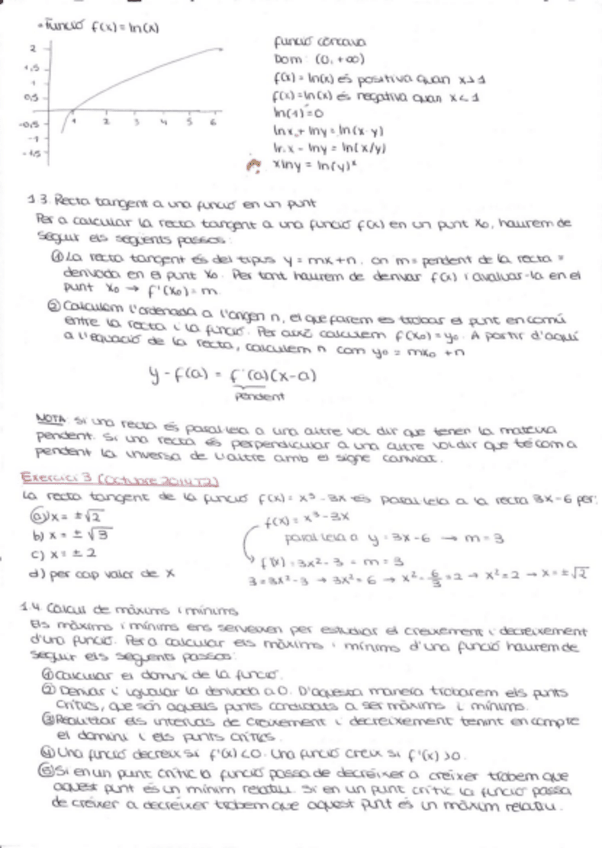 - Funció f(x) = ln(x)
2
1,5
1
0,5
-0,5
-1
-1,5
1 2 3 4 5 6
funció còncava
Dom: (0, +∞)
f(x) = ln(x) és positiva quan x>1
f(x) = ln(x) és negativa quan x<1
ln(1) = 0
lnx + lny = ln(x·y)
ln x - lny = ln(x/y)
xlny = ln(y)ˣ
1.3. Recta tangent a una funció en un punt
Per a calcular la recta tangent a una funció f(x) en un punt x₀, haurem de
seguir els següents passos:
① La recta tangent és del tipus y = mx+n, on m = pendent de la recta =
derivada en el punt x₀. Per tant haurem de derivar f(x) i avaluar-la en el
punt x₀ → f'(x₀) = m
② Calculem l'ordenada a l'origen n, el que farem és trobar el punt en comú
entre la recta i la funció. Per això calculem f(x₀) = y₀. A partir d'aquí
a l'equació de la recta, calculem n com y₀ = mx₀ + n
y - f(a) = f'(a)(x-a)
pendent
NOTA: Si una recta és paral·lela a una altre vol dir que tenen la mateixa
pendent. Si una recta és perpendicular a una altre vol dir que té com a
pendent la inversa de l'altre amb el signe canviat.
Exercici 3 (Octubre 2014 T2)
La recta tangent de la funció f(x) = x³ - 3x és paral·lela a la recta 3x-6 per:
a) x = ±√2
b) x = ±√3
c) x = ±2
d) per cap valor de x
f(x) = x³ - 3x
paral·lela a y = 3x-6 → m = 3
f'(x) = 3x² - 3 = m = 3
3 = 3x² - 3 → 3x² = 6 → x² = 6/3 = 2 → x² = 2 → x = ±√2
1.4. Càlcul de màxims i mínims
Els màxims i mínims ens serveixen per estudiar el creixement i decreixement
d'una funció. Per a calcular els màxims i mínims d'una funció haurem de
seguir els següents passos:
① Calcular el domini de la funció.
② Derivar i igualar la derivada a 0. D'aquesta manera trobarem els punts
crítics, que són aquells punts candidats a ser màxims i mínims.
③ Realitzar els intervals de creixement i decreixement tenint en compte
el domini i els punts crítics.
④ Una funció decreix si f'(x) < 0. Una funció creix si f'(x) > 0.
⑤ Si en un punt crític la funció passa de decréixer a créixer trobem que
aquest punt és un mínim relatiu. Si en un punt crític la funció passa
de créixer a decréixer trobem que aquest punt és un màxim relatiu.